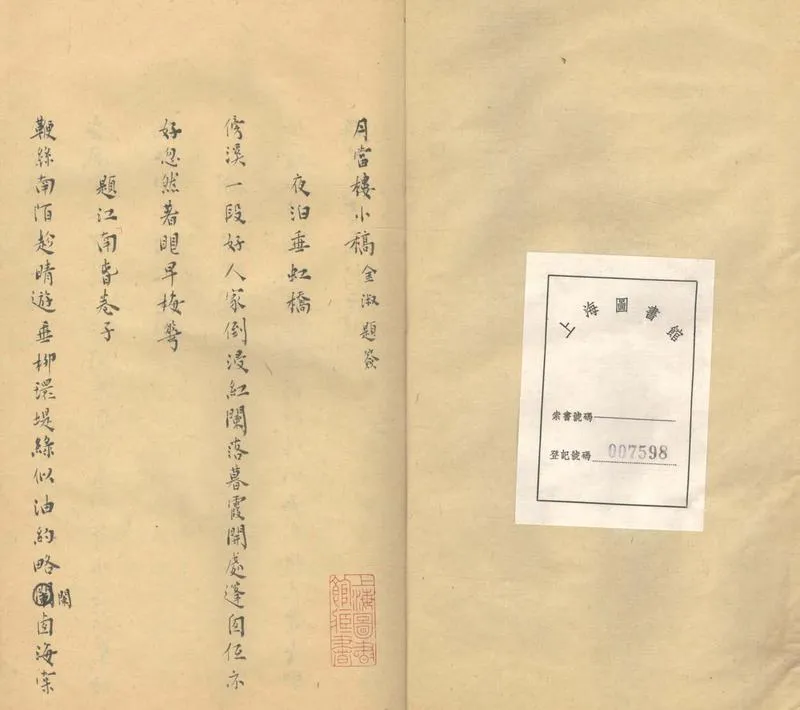 上海圖書館
索書號碼
登記號碼 007598
月當樓小稿 金淑題簽
夜泊垂虹橋
傍溪一段好人家倒浸紅闌落暮霞開處篷囪低亦
好忽然著眼早梅
題江南旾卷子
鞭絲南陌趁晴遊垂柳環堤綠似油約略闌囪海棠
上海圖書館藏書